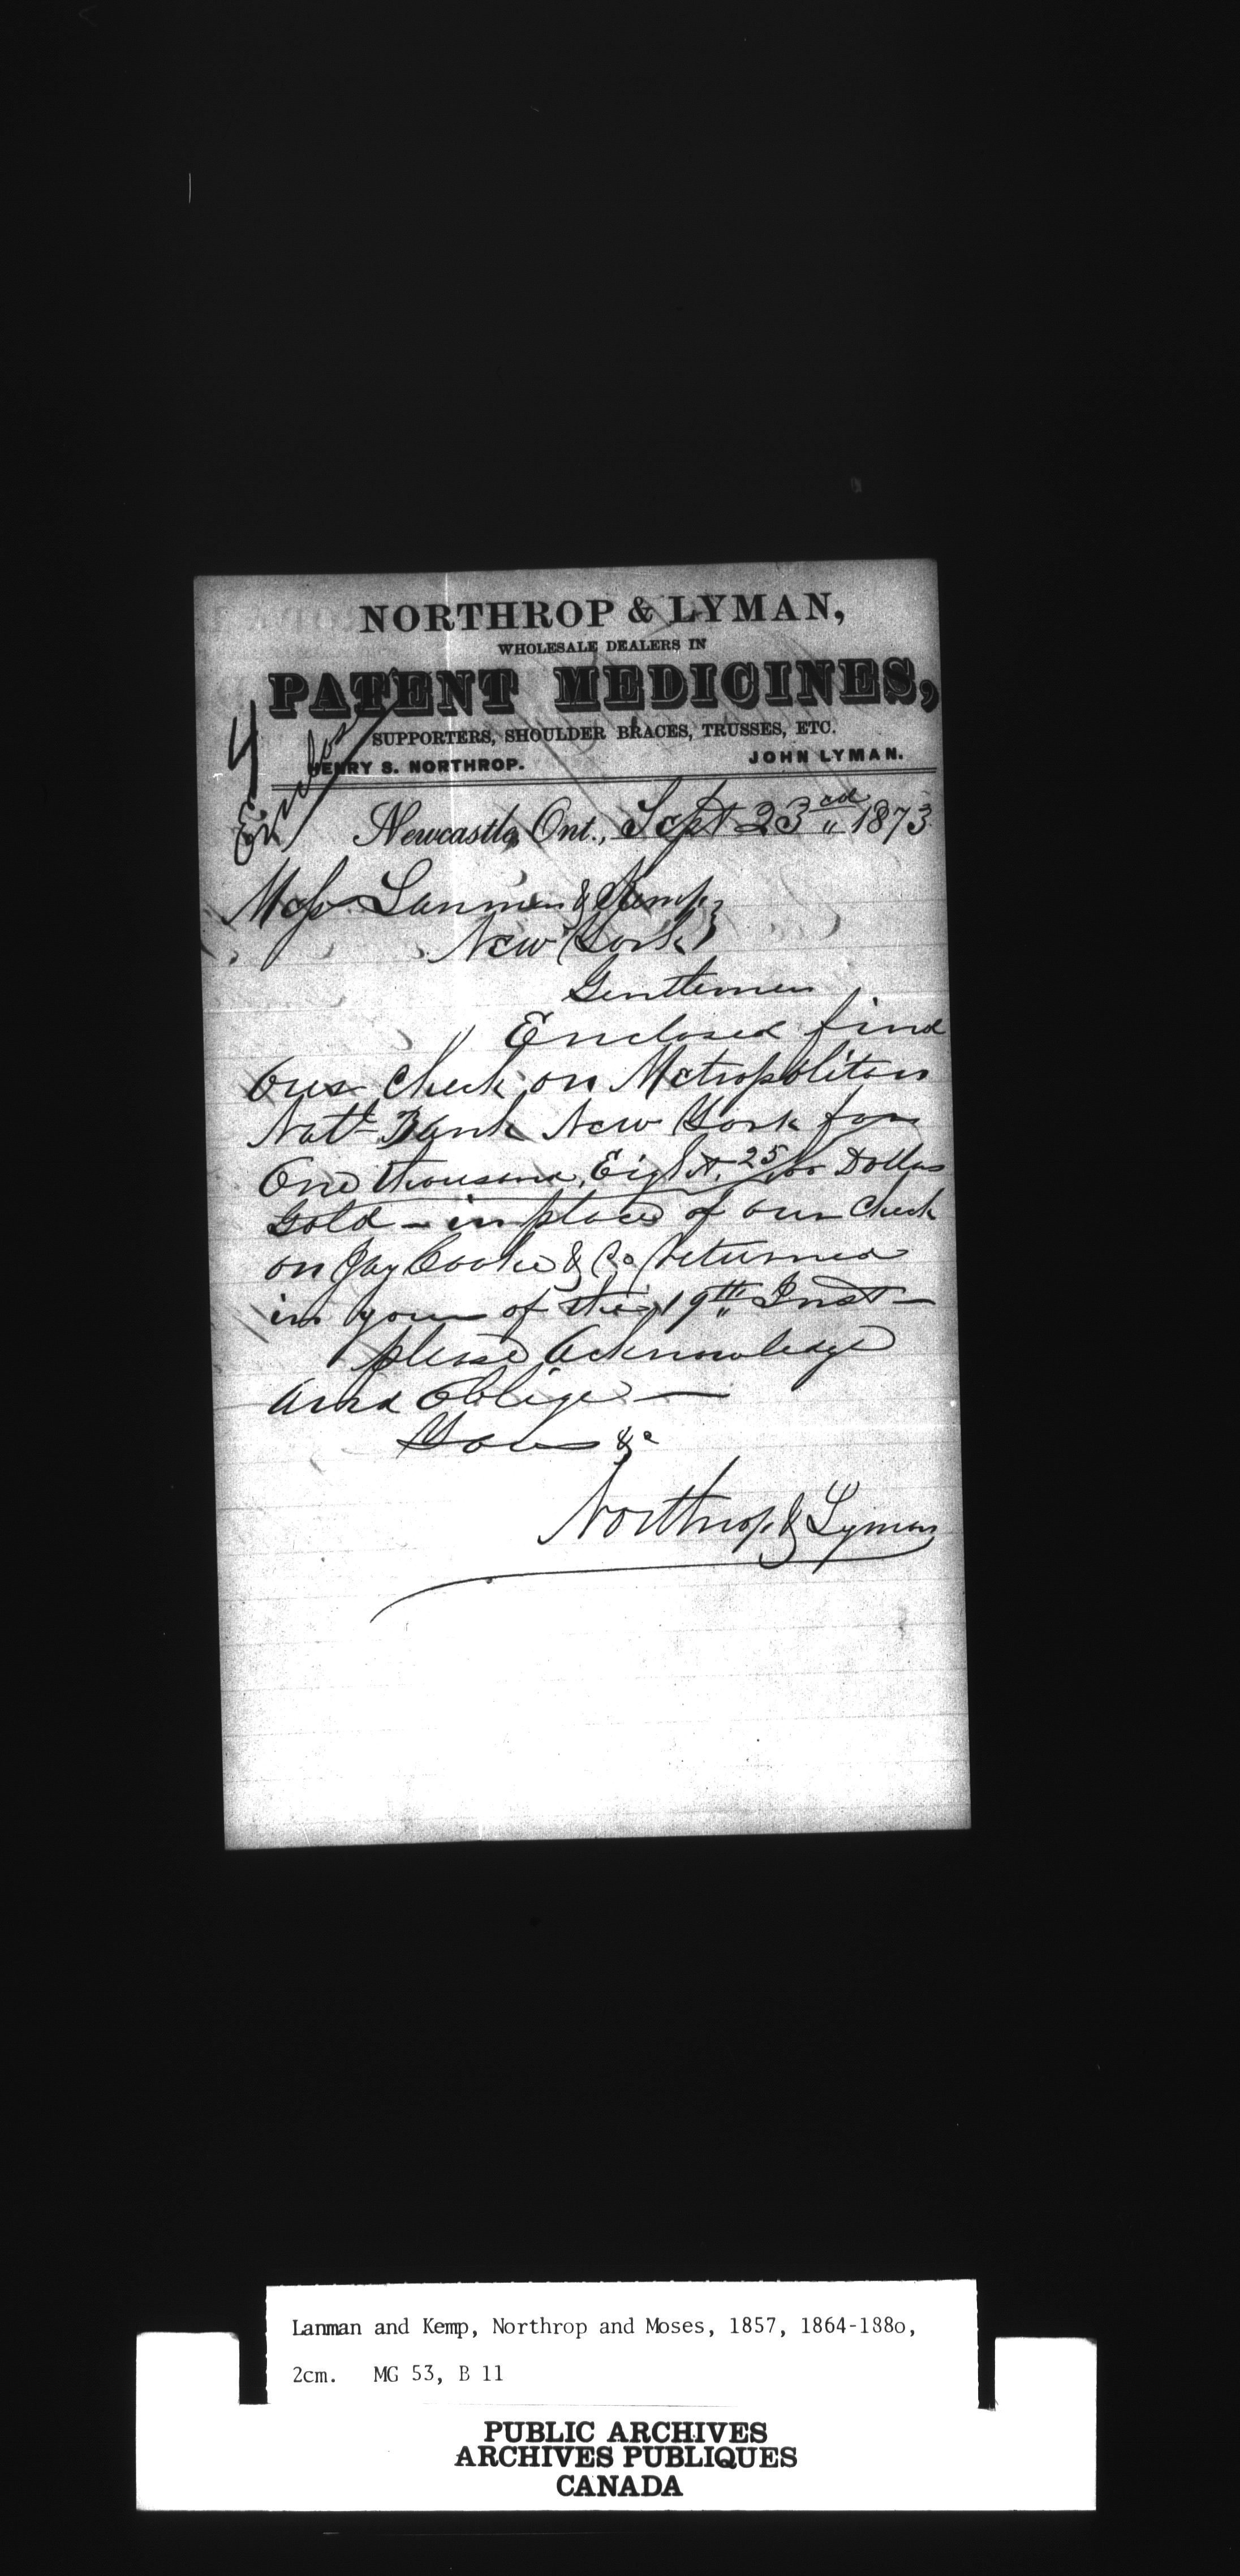 NORTHROP & LYMAN,
WHOLESALE DEALERS IN
PATENT MEDICINES,
SUPPORTERS, SHOULDER BRACES, TRUSSES, ETC.
HENRY S. NORTHROP. JOHN LYMAN.
Newcastle, Ont., Sept 23rd 1873
Mess Lanman & Kemp
New York
Gentlemen
Enclosed find
Our check on Metropolitan
Natl Bank New York for
One thousand, Eight, 25/00 Dollars
Gold - in place of our check
on Jay Cooke & Co returned
in yours of the 19th Inst -
please Acknowledge
And Oblige —
Yours &c
Northrop & Lyman
Lanman and Kemp, Northrop and Moses, 1857, 1864-188o,
2cm. MG 53, B 11
PUBLIC ARCHIVES
ARCHIVES PUBLIQUES
CANADA